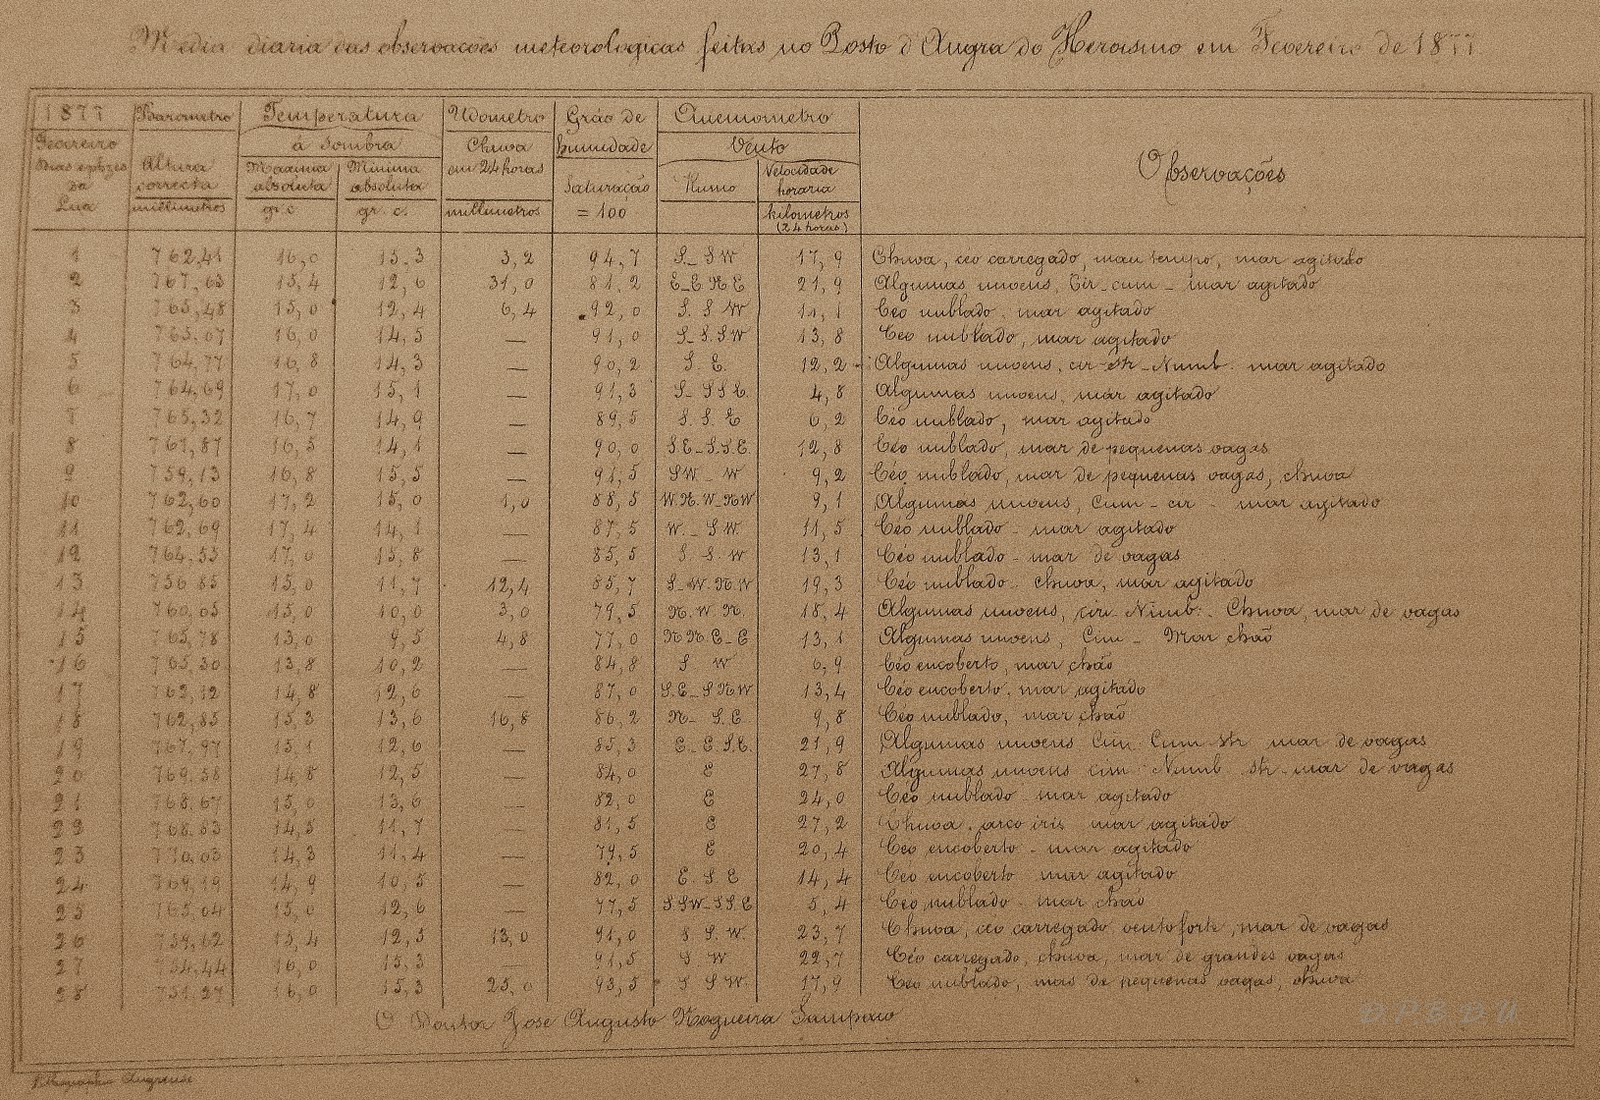 Media diaria das observações meteorologicas feitas no Posto d'Angra do Heroismo em Fevereiro de 1877.
1877 Barometro Temperatura Udometro Gráo de Anemometro
Fevereiro á sombra Chuva humidade Vento Observações
Dias e phazes da Lua Altura correcta Maxima absoluta Minima absoluta em 24 horas Saturação Rumo Velocidade horaria
millimetros gr. c. gr. c. millimetros = 100 kilometros (24 horas)
1 762,41 16,0 15,3 3,2 94,7 S_SW 17,9 Chuva, ceo carregado, mau tempo, mar agitado
2 767,63 15,4 12,6 31,0 81,2 E_ENE 21,9 Algumas nuvens, Cir_cum_ mar agitado
3 765,48 15,0 12,4 6,4 92,0 S.S W 11,1 Céo nublado, mar agitado
4 765,07 16,0 14,5 — 91,0 S_SSW 13,8 Céo nublado, mar agitado
5 764,77 16,8 14,3 — 90,2 S.E. 12,2 Algumas nuvens, cir str_Nimb. mar agitado
6 764,69 17,0 15,1 — 91,3 S_SSE 4,8 Algumas nuvens, mar agitado
7 765,32 16,7 14,9 — 89,5 S.S.E 6,2 Céo nublado, mar agitado
8 761,87 16,5 14,1 — 90,0 SE_S.S.E. 12,8 Céo nublado, mar de pequenas vagas
9 759,13 16,8 15,5 — 91,5 SW_W 9,2 Céo nublado, mar de pequenas vagas, chuva
10 762,60 17,2 15,0 1,0 88,5 W.N.W_NW 9,1 Algumas nuvens, Cum_cir_ mar agitado
11 762,69 17,4 14,1 — 87,5 W._SW. 11,5 Céo nublado_mar agitado
12 764,55 17,0 15,8 — 85,5 S_S.W 13,1 Céo nublado_mar de vagas
13 756,85 15,0 11,7 12,4 85,7 S_W.N.W 19,3 Céo nublado_chuva, mar agitado
14 760,05 15,0 10,0 3,0 79,5 N.W N. 18,4 Algumas nuvens, cir_Nimb. Chuva, mar de vagas
15 765,78 13,0 9,5 4,8 77,0 NN.E_E 13,1 Algumas nuvens, Cum_ Mar chão
16 765,30 13,8 10,2 — 84,8 S W 6,9 Céo encoberto, mar chão
17 762,12 14,8 12,6 — 87,0 S.E_SNW 13,4 Céo encoberto, mar agitado
18 762,85 15,3 13,6 16,8 86,2 N_S.E 9,8 Céo nublado, mar chão
19 767,97 15,1 12,6 — 85,3 E_E.S.E. 21,9 Algumas nuvens Cum str mar de vagas
20 769,58 14,8 12,5 — 84,0 E 27,8 Algumas nuvens Nimb str_mar de vagas
21 768,67 15,0 13,6 — 82,0 E 24,0 Céo nublado_mar agitado
22 768,83 14,5 11,7 — 81,5 E 27,2 Chuva, arco iris mar agitado
23 770,03 14,3 11,4 — 79,5 E 20,4 Céo encoberto_mar agitado
24 769,19 14,9 10,5 — 82,0 E.S.E 14,4 Céo encoberto mar agitado
25 765,04 15,0 12,6 — 77,5 SSW_SSE 5,4 Céo nublado_mar chão
26 759,62 15,4 12,5 13,0 91,0 S S.W. 23,7 Chuva, ceo carregado vento forte, mar de vagas
27 754,44 16,0 15,3 — 91,5 S W 22,7 Céo carregado, chuva, mar de grandes vagas
28 751,27 16,0 15,3 25,0 93,5 S SW. 17,9 Céo nublado, mar de pequenas vagas, chuva
O Doutor José Augusto Nogueira Sampaio
Angrense